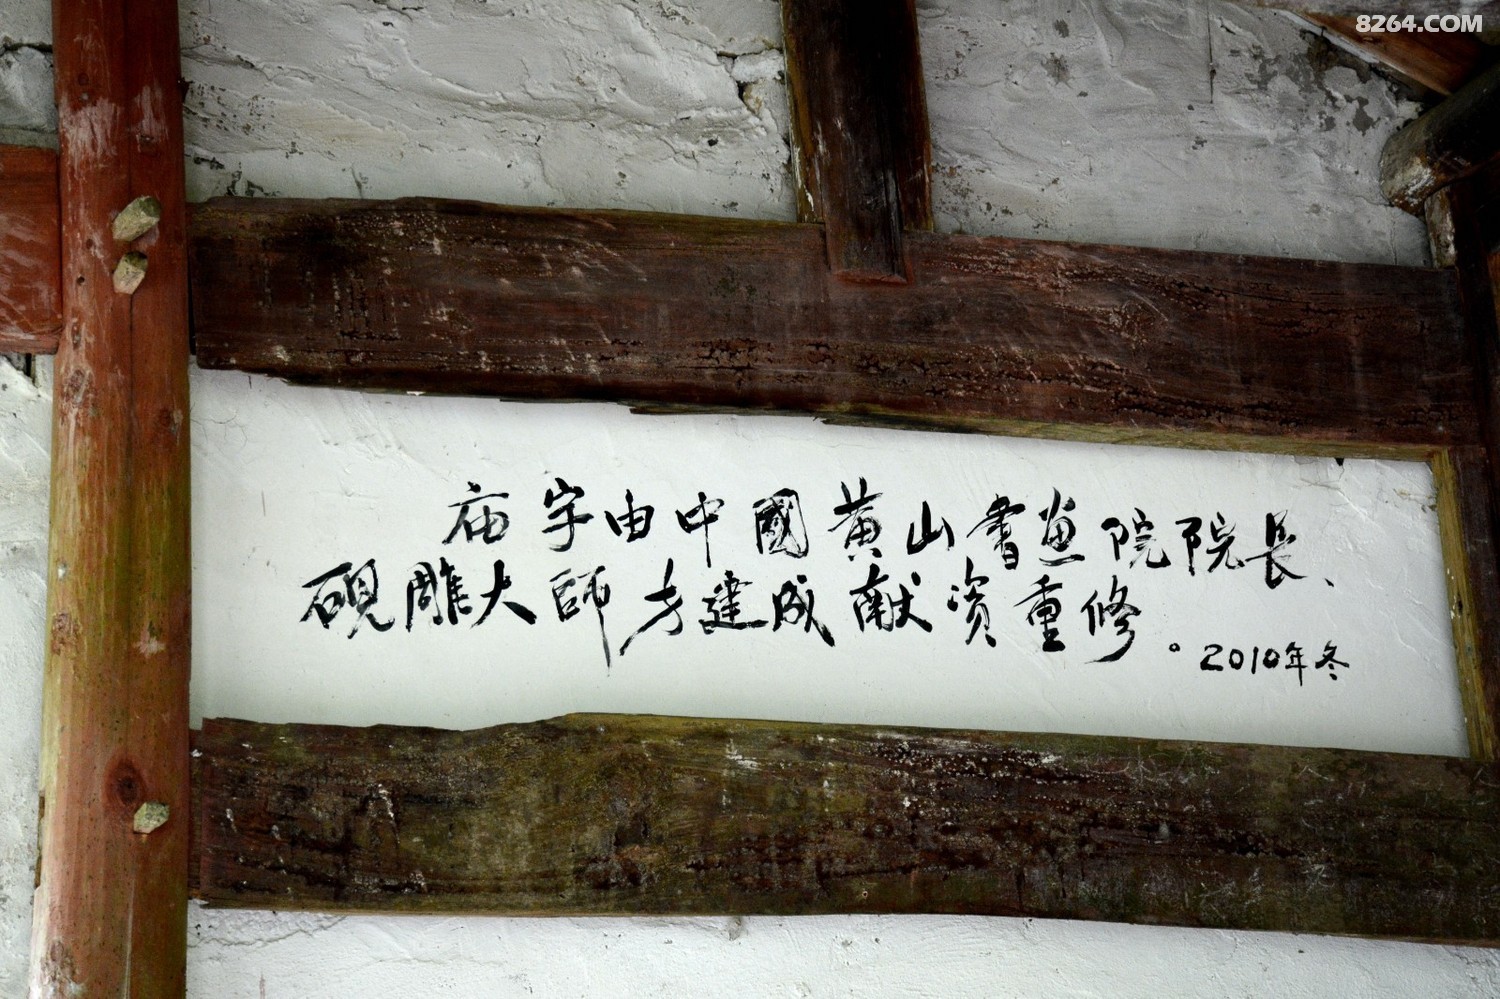 8264.COM
庙宇由中國黄山書画院院長、
硯雕大師方建成献资重修。2010年冬